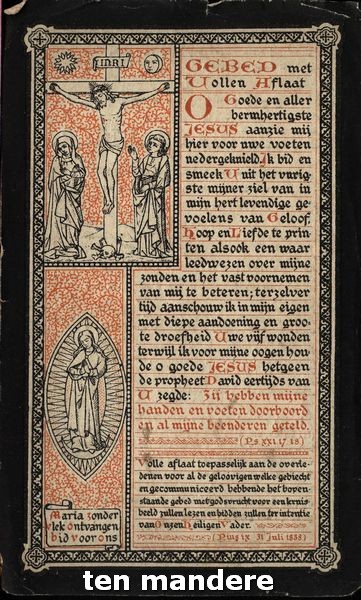 INRI
GEBED met
Vollen Aflaat
O Goede en aller
bermhertigste
JESUS aanzie mij
hier voor uwe voeten
nedergeknield. Ik bid en
smeek U uit het vurig
ste mijner ziel van in
mijn hert levendige ge
voelens van Geloof
Hoop en Liefde te prin
ten alsook een waar
leedwezen over mijne
zonden en het vast voornemen
van mij te beteren; terzelver
tijd aanschouw ik in mijn eigen
met diepe aandoening en groo-
te droefheid Uwe vijf wonden
terwijl ik voor mijne oogen hou-
de o goede JESUS hetgeen
de propheet David eertijds van
U zegde: Zij hebben mijne
handen en voeten doorboord
en al mijne beenderen geteld.
(Ps xxi 17 18)
Volle aflaat toepasselijk aan de overle-
denen voor al de geloovigen welke gebiecht
en gecommuniceerd hebbende het boven-
staande gebed met godsvrucht voor een kruis
beeld zullen lezen en bidden zullen ter intentie
van Onzen Heiligen Vader.
(Pius ix 31 Juli 1858)
Maria zonder
vlek ontvangen
bid voor ons
ten mandere